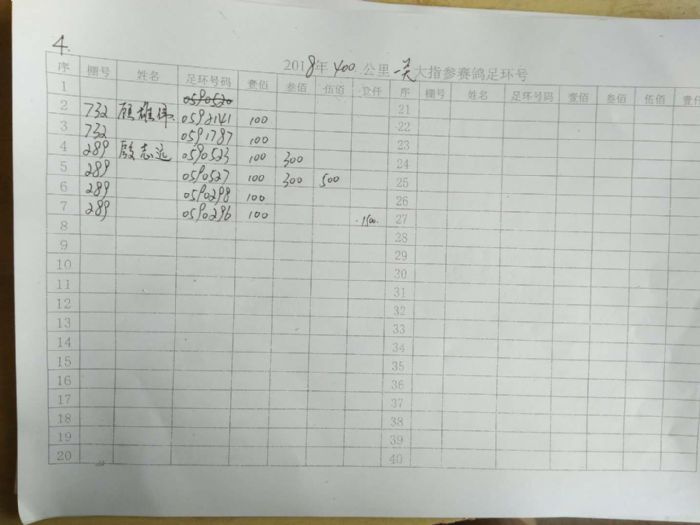 4.
2018年400公里一关大指参赛鸽足环号
序 棚号 姓名 足环号码 壹佰 叁佰 伍佰 壹仟 序 棚号 姓名 足环号码 壹佰 叁佰 伍佰 壹仟
1 0590520 21
2 732 0592141 100 22
3 732 0591787 100 23
4 289 殷志远 0590523 100 300 24
5 289 0590527 100 300 500 25
6 289 0590298 100 26
7 289 0590296 100 27
8 28
9 29
10 30
11 31
12 32
13 33
14 34
15 35
16 36
17 37
18 38
19 39
20 40